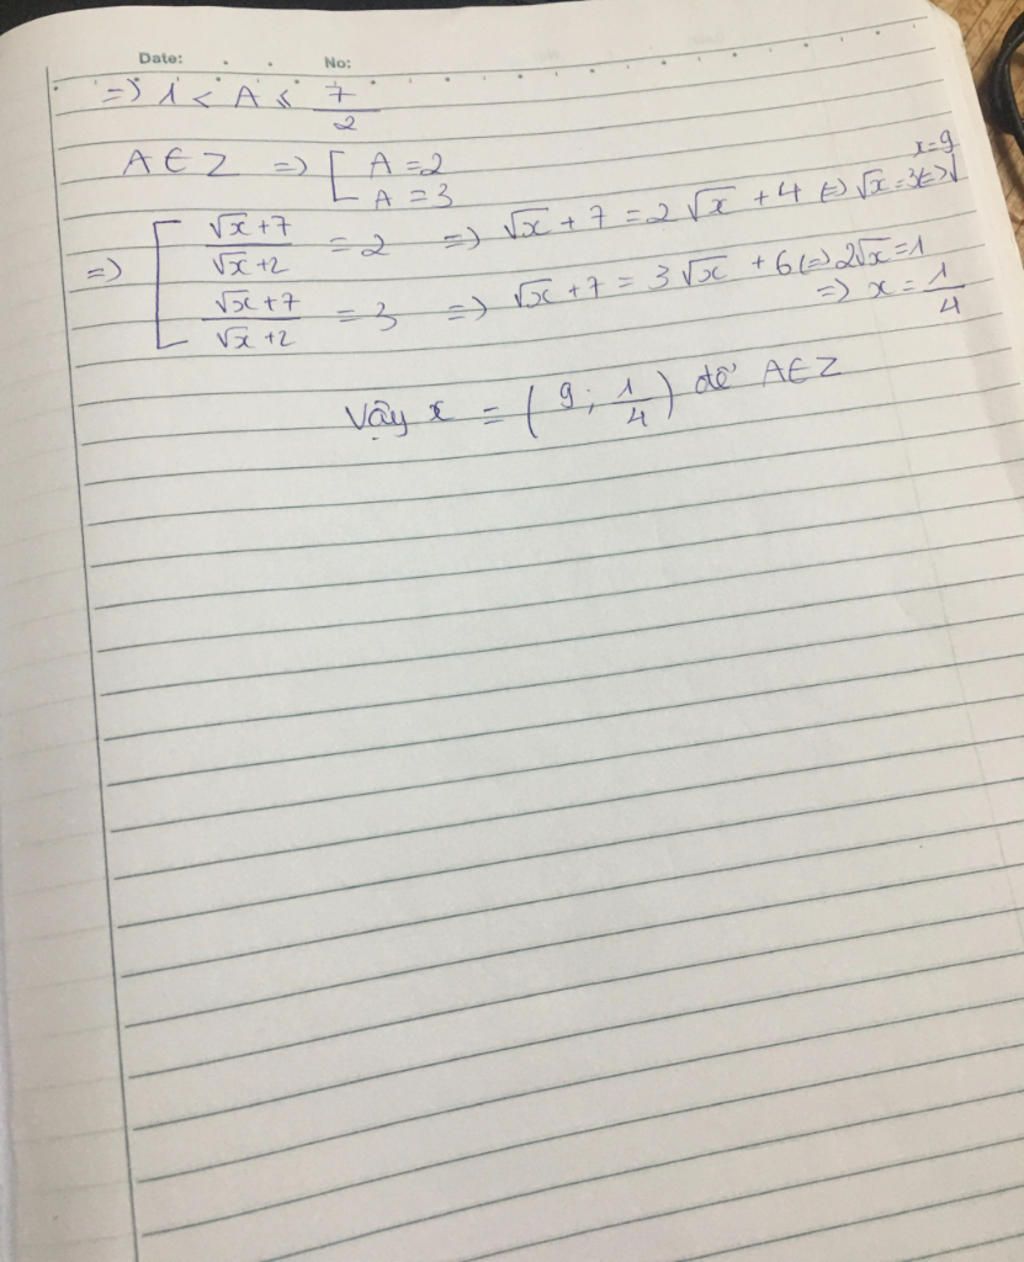 Date: No:
=> 1 < A ≤ 7/2
A ∈ Z => [ A = 2
A = 3
x = 9
=> [ (√x + 7)/(√x + 2) = 2 => √x + 7 = 2√x + 4 <=> √x = 3 <=>
(√x + 7)/(√x + 2) = 3 => √x + 7 = 3√x + 6 <=> 2√x = 1
=> x = 1/4
Vậy x = (9; 1/4) để A ∈ Z